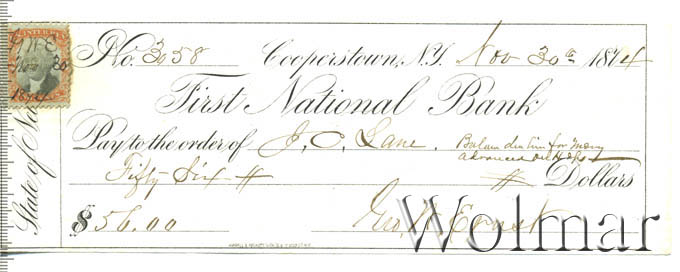 No. 3058 Cooperstown, N.Y. Nov 30th 1874
First National Bank
Pay to the order of J. C. Lane. Balance due him for money
advanced
Fifty Six # # Dollars
$56.00 Geo. W. Ernst
State of
INTER
Nov 30
1874
Wolmar